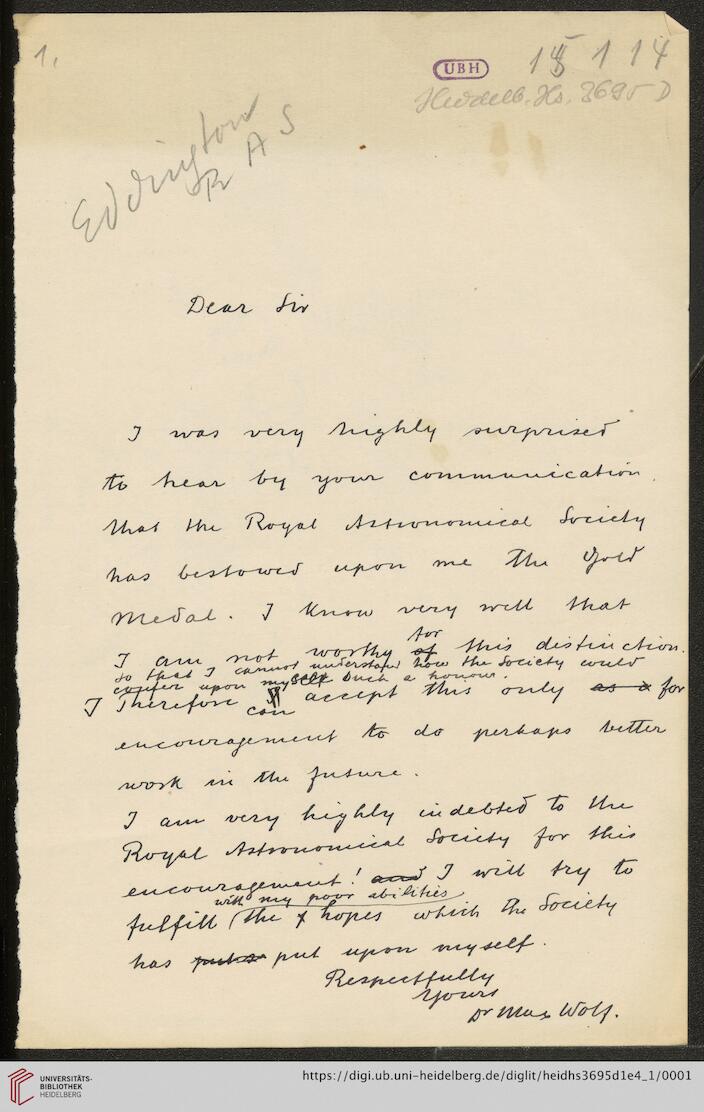 1.
UBH
15 1 14
Heidelb. Hs. 3695 D
Eddington
R A S
Dear Sir
I was very highly surprised
to hear by your communication,
that the Royal Astronomical Society
has bestowed upon me the Gold
Medal. I know very well that
for
I am not worthy of this distinction.
so that I cannot understand how the Society could
confer upon myself such a honour.
I Therefore I accept this only as a for
can
encouragement to do perhaps better
work in the future.
I am very highly indebted to the
Royal Astronomical Society for this
encouragement! and I will try to
with my poor abilities
fulfill (the hopes which the Society
has put put upon myself.
Respectfully
Yours
Dr Max Wolf.
UNIVERSITÄTS-
BIBLIOTHEK
HEIDELBERG
https://digi.ub.uni-heidelberg.de/diglit/heidhs3695d1e4_1/0001